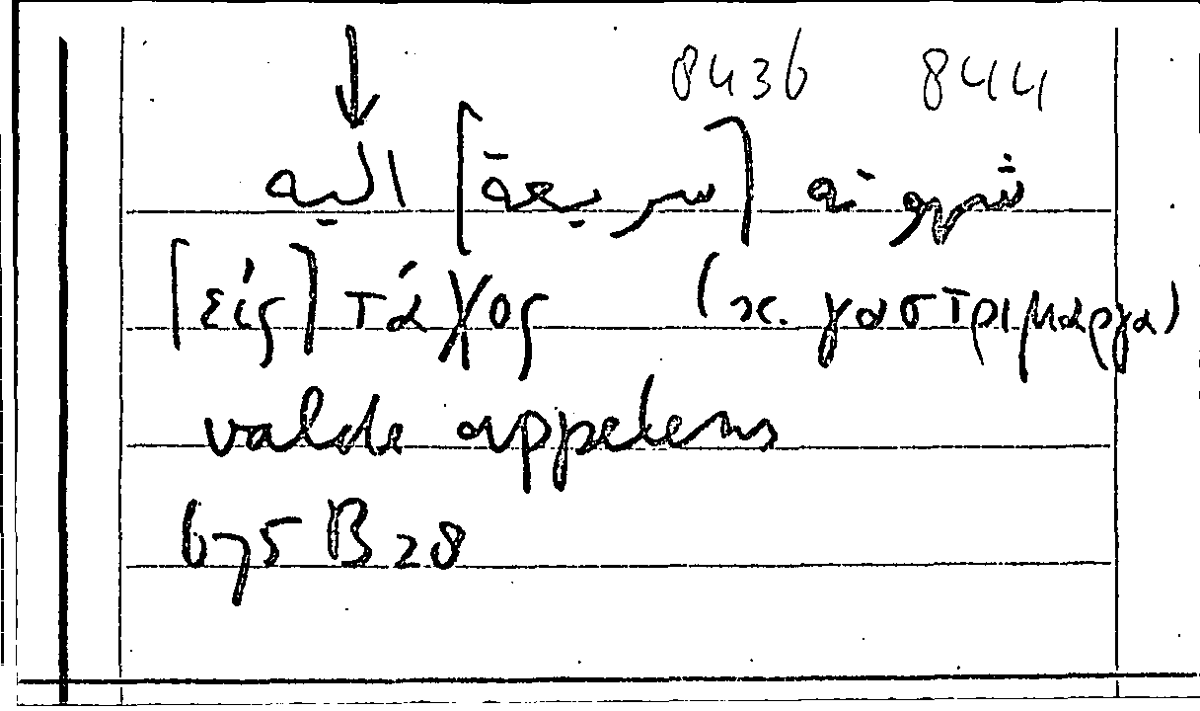 ↓ 8436 844
شهوته [سريعة] اليه
[είς] τάχος (sc. γαστριμαργα)
valde appetens
675 B 28